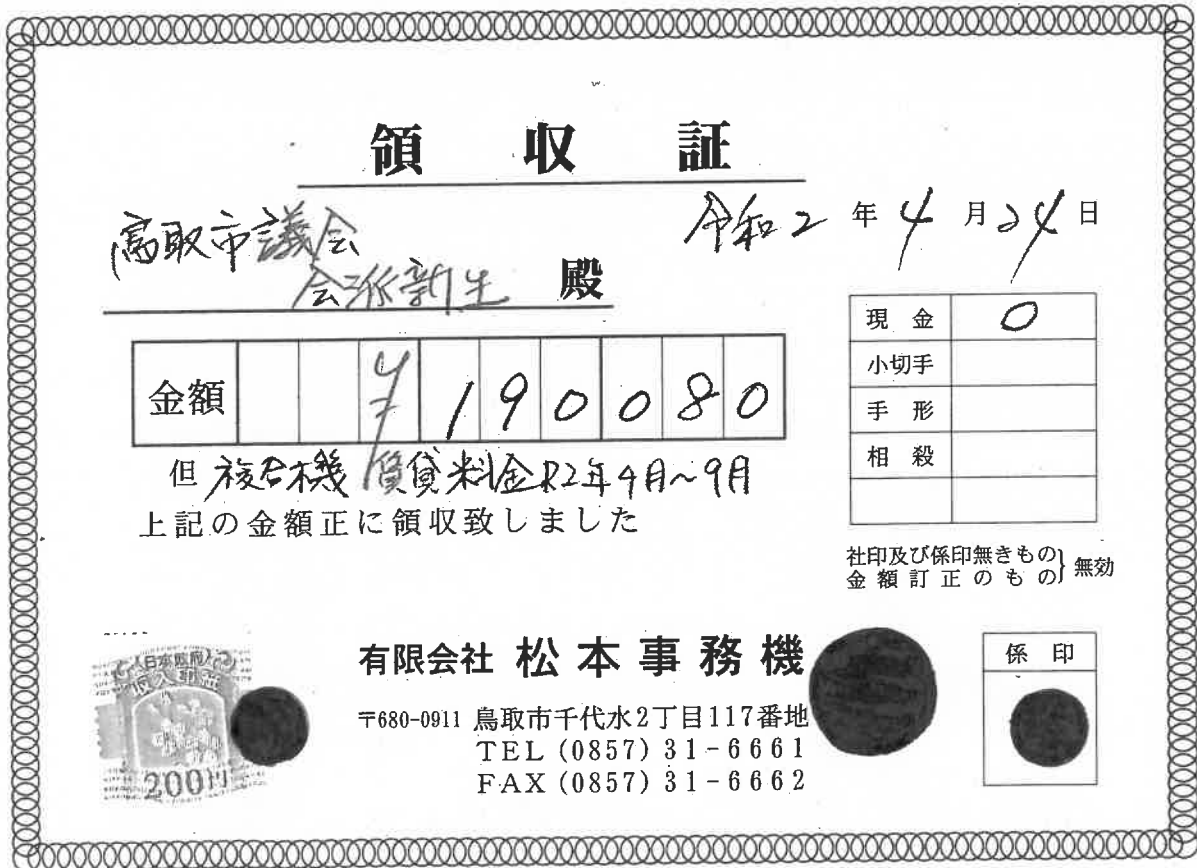 領収証
令和2年4月24日
鳥取市議会
会派新生 殿
金額 ¥190080
但 複合機 賃貸料金R2年4月~9月
上記の金額正に領収致しました
現金 0
小切手
手形
相殺
社印及び係印無きもの
金額訂正のもの}無効
日本政府
収入印紙
200円
有限会社 松本事務機
〒680-0911 鳥取市千代水2丁目117番地
TEL (0857) 31-6661
FAX (0857) 31-6662
係印